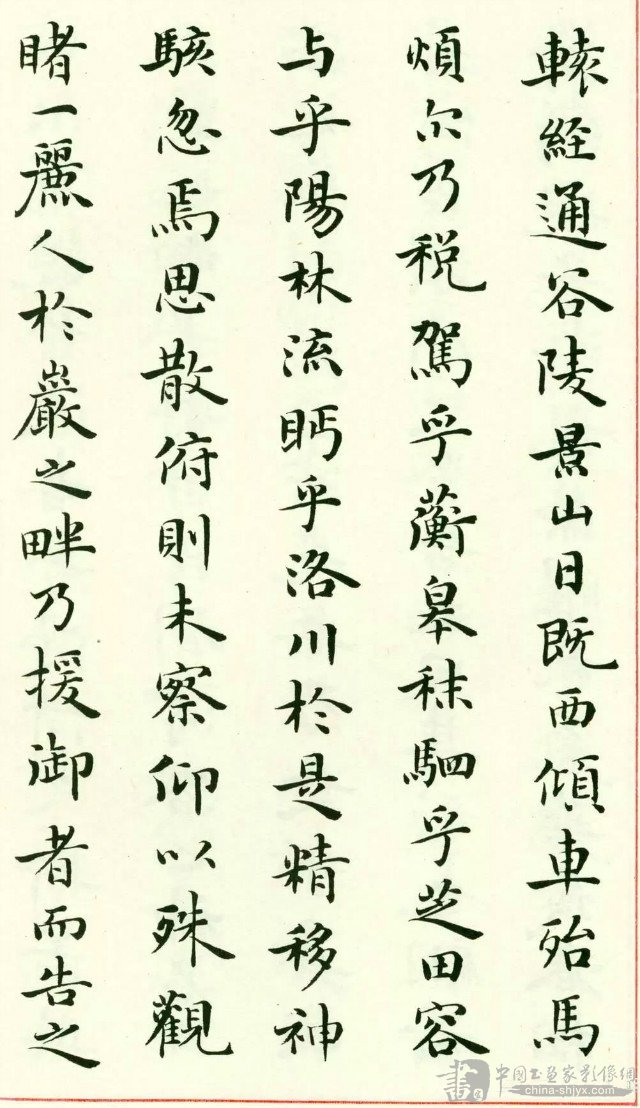 轅經通谷陵景山日既西傾車殆馬
煩尔乃税駕乎蘅皋秣駟乎芝田容
与乎陽林流眄乎洛川於是精移神
駭忽焉思散俯則未察仰以殊觀
睹一麗人於巖之畔乃援御者而告之
中国书画家影像網
china-shjyx.com